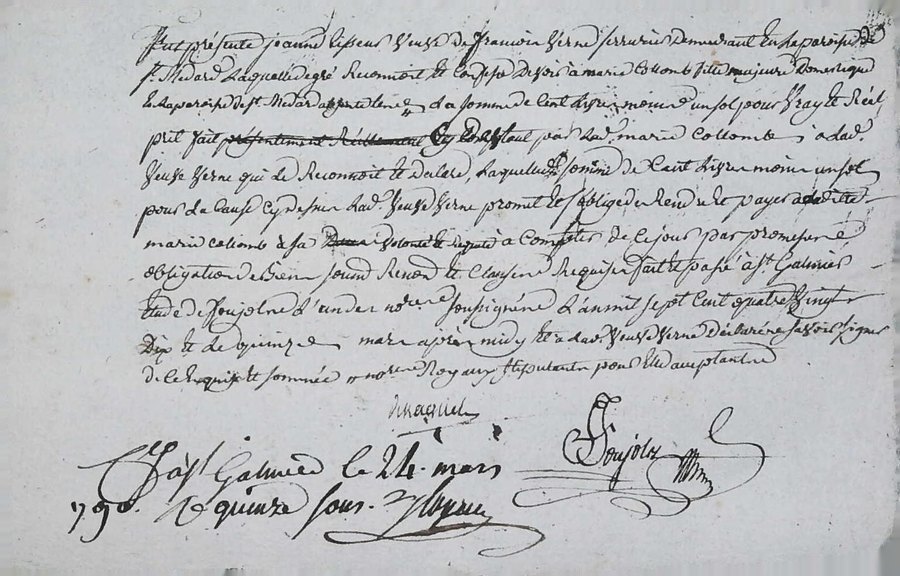 fut présente jeanne veuve de francois verne serrurier demeurant en la paroisse de
st. Medard laquelle de gré reconnoit et confesse devoir à marie collomb fille majeure domestique
en la paroisse de st Medard la somme de cent livres moins un sol pour vray et réel
prêt fait présentement réellement par lad. marie collomb à lad.
veuve verne qui le reconnoit et déclare, laquelle somme de cent livres moins un sol
pour la cause cy dessus lad. veuve verne promet et s'oblige de rendre et payer à ladite
marie collomb à sa volonté à compter de ce jour par promesse
obligation de biens soumd. renond. et clauses requises fait et passé à st. Galmier
étude de l'un des nores. soussignés l'an mil sept cent quatre vingt
dix et le quinze mars après midy et a lad. veuve verne déclaré ne savoir signer
de ce requise et sommée nores. Royaux stipulants pour elle acceptante

à st Galmier le 24. mars
1790. R quinze sous.